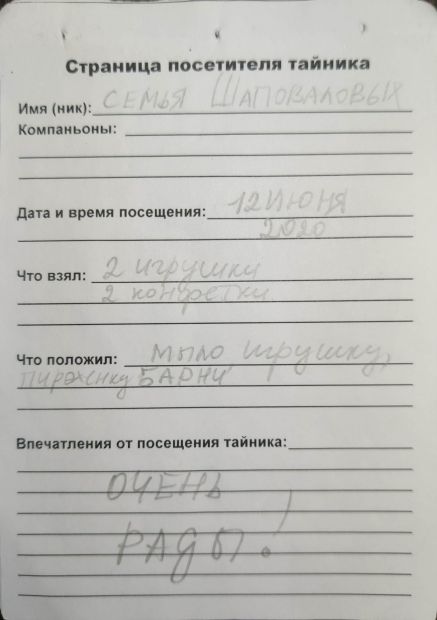 Страница посетителя тайника
Имя (ник): СЕМЬЯ ШАПОВАЛОВЫХ
Компаньоны:
Дата и время посещения: 12 ИЮНЯ
2020
Что взял: 2 игрушки
2 конфетки
Что положил: мыло игрушку,
пироженку БАРНИ
Впечатления от посещения тайника:
ОЧЕНЬ
РАДЫ!